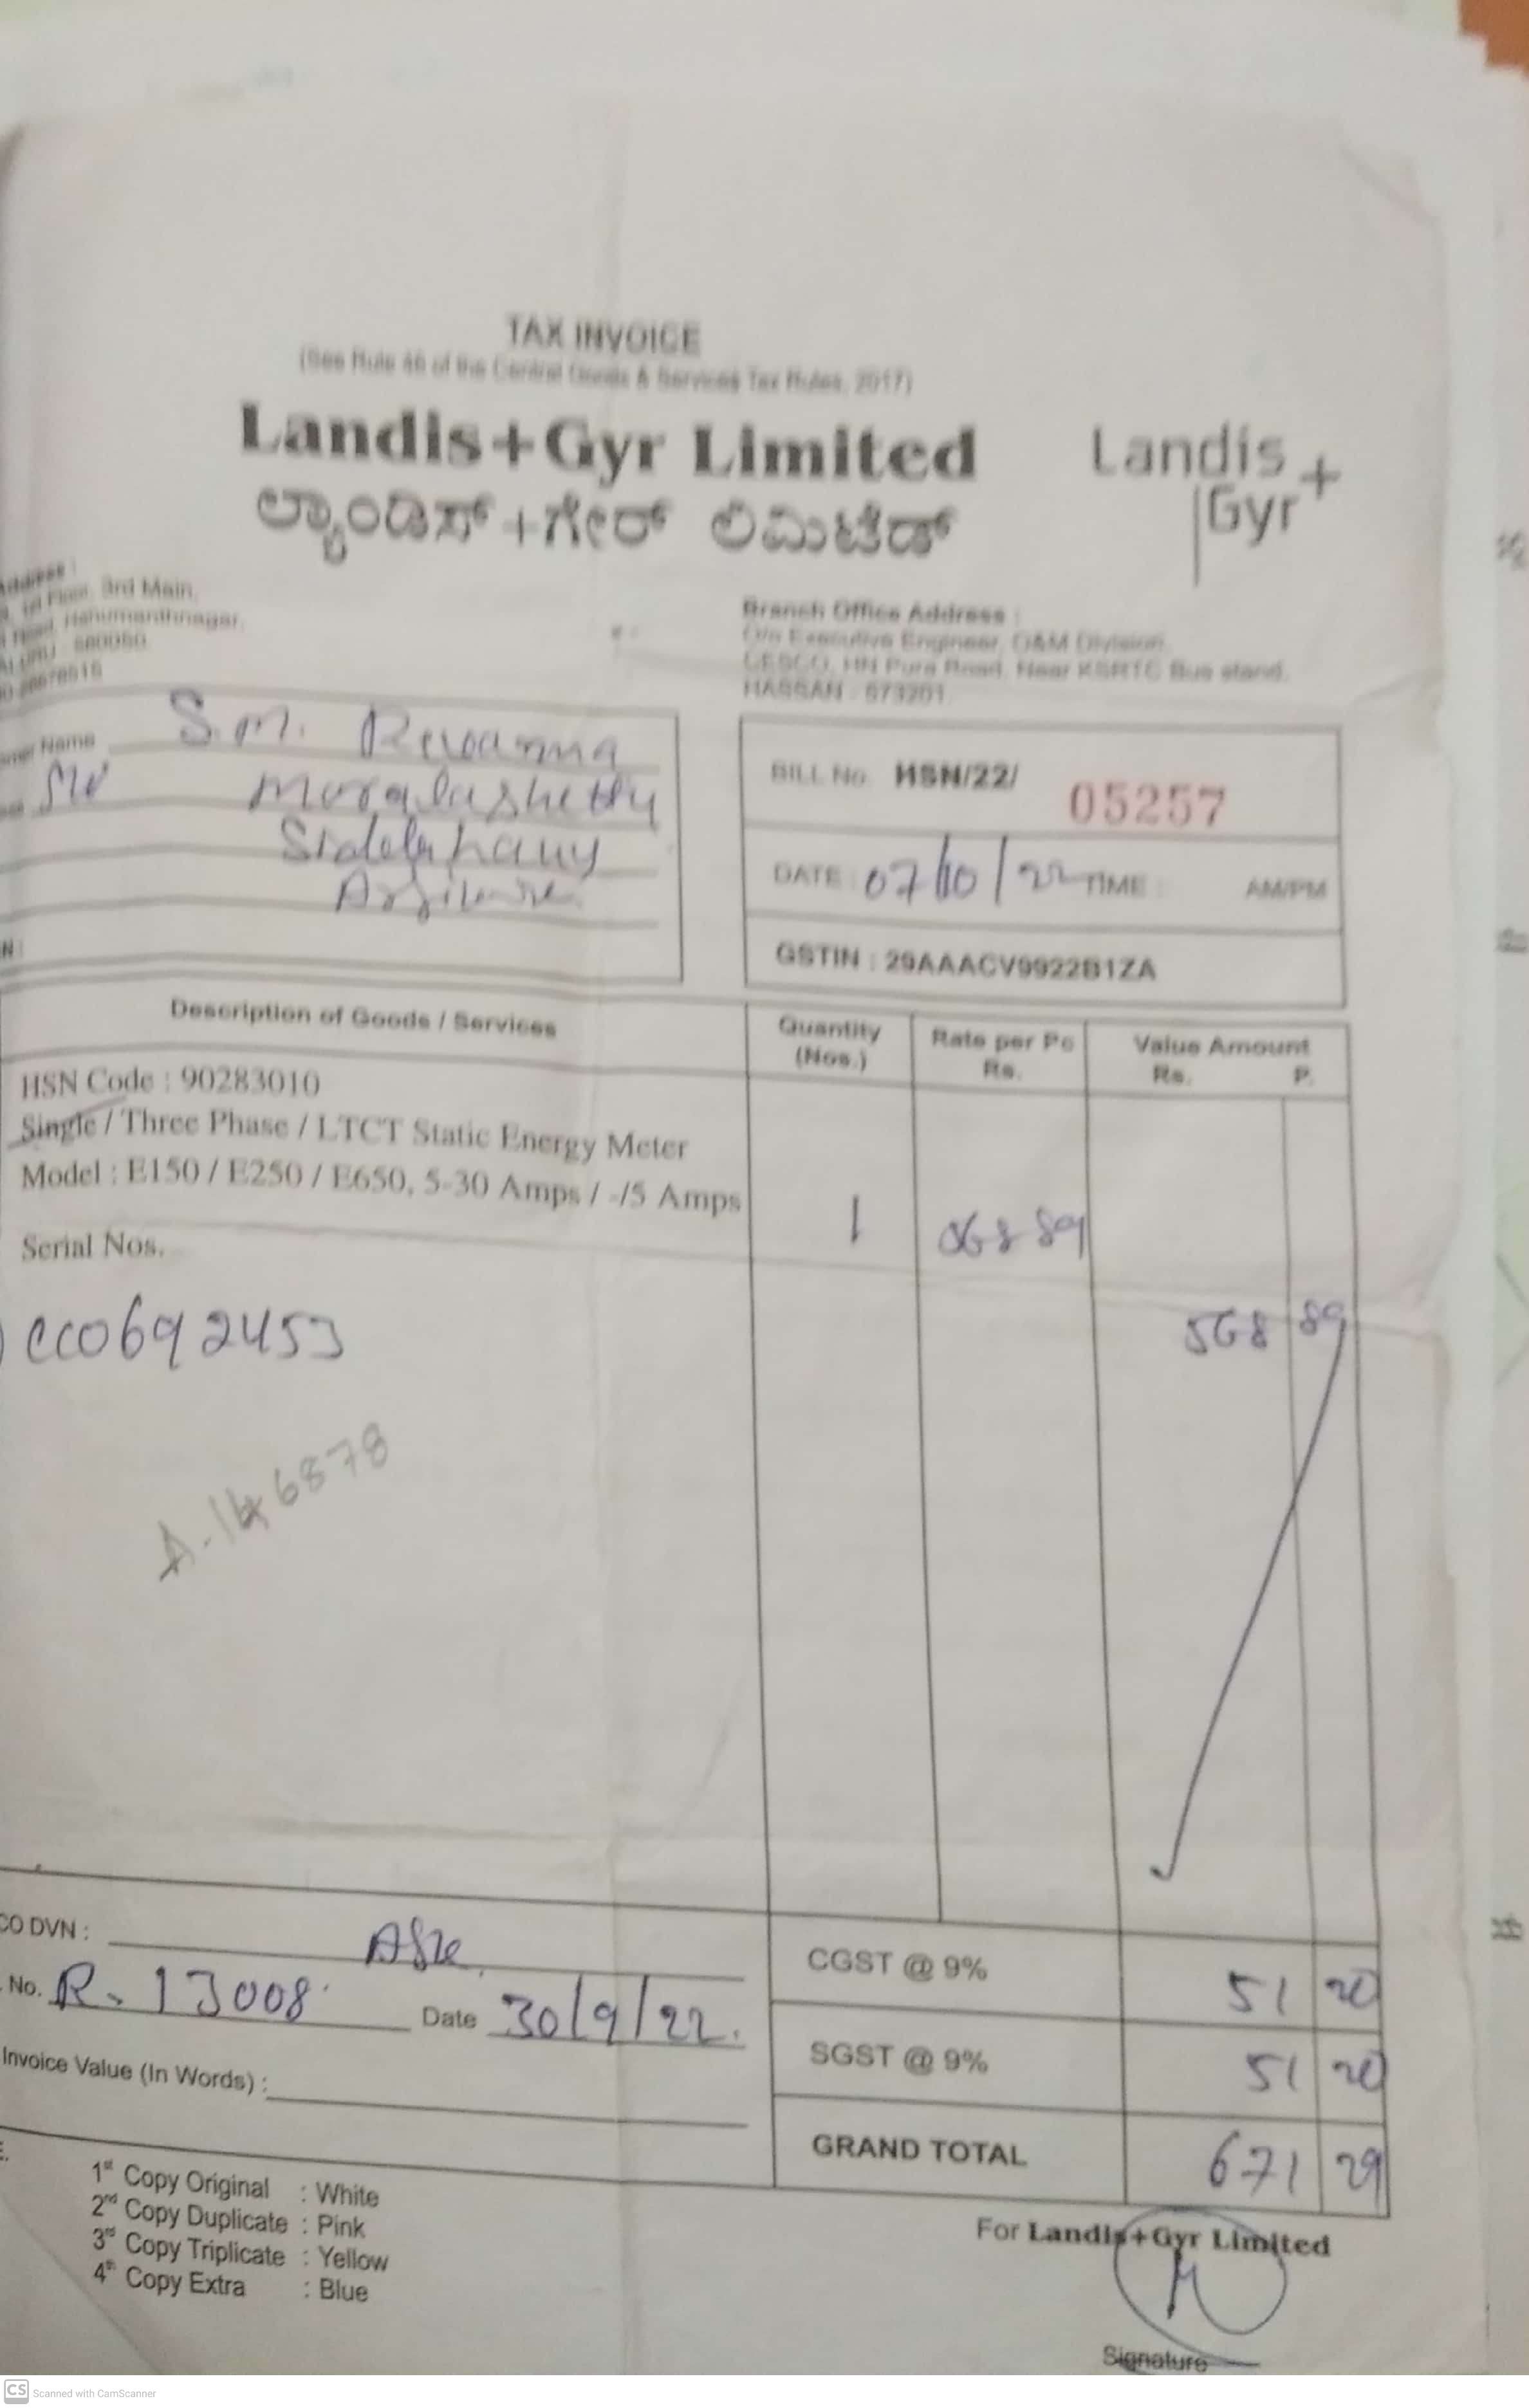 TAX INVOICE
(See Rule 46 of the Central Goods & Services Tax Rules, 2017)
Landis+Gyr Limited
ಲ್ಯಾಂಡಿಸ್+ಗೇರ್ ಲಿಮಿಟೆಡ್
Landis+
Gyr
Address :
1st Floor, 3rd Main,
Road, Hanumanthnagar,
560050
Branch Office Address :
O/o Executive Engineer, O&M Division,
CESCO, HN Pura Road, Near KSRTC Bus stand,
HASSAN - 573201
Name S.M. Revanna
Siddapura
BILL No. HSN/22/ 05257
DATE : 07/10/22 TIME : AM/PM
GSTIN : 29AAACV9922B1ZA
N :
Description of Goods / Services
Quantity
(Nos.)
Rate per Pc
Rs.
Value Amount
Rs. P.
HSN Code : 90283010
Single / Three Phase / LTCT Static Energy Meter
Model : E150 / E250 / E650, 5-30 Amps / -/5 Amps
1 568 89
Serial Nos.
568 89
CC0692453
A-146878
CO DVN :
No. R. 13008 Date 30/9/22.
Invoice Value (In Words) :
CGST @ 9% 51 20
SGST @ 9% 51 20
GRAND TOTAL 671 29
1st Copy Original : White
2nd Copy Duplicate : Pink
3rd Copy Triplicate : Yellow
4th Copy Extra : Blue
For Landis+Gyr Limited
Signature
CS Scanned with CamScanner